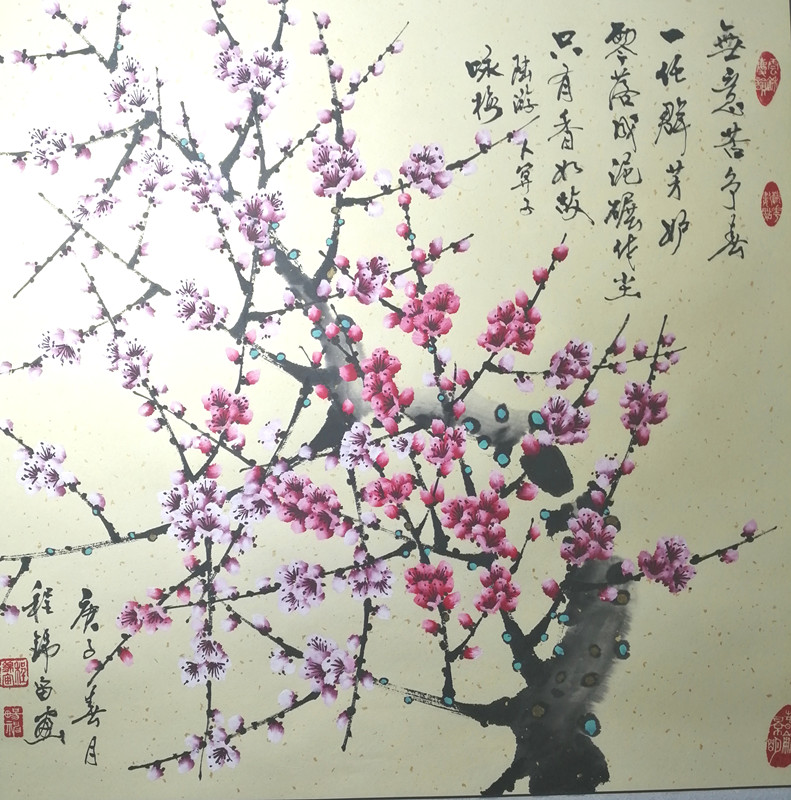 無意苦争春
一任群芳妒
零落成泥碾作塵
只有香如故
陆游/卜算子
咏梅
庚子春月
程锦雷画